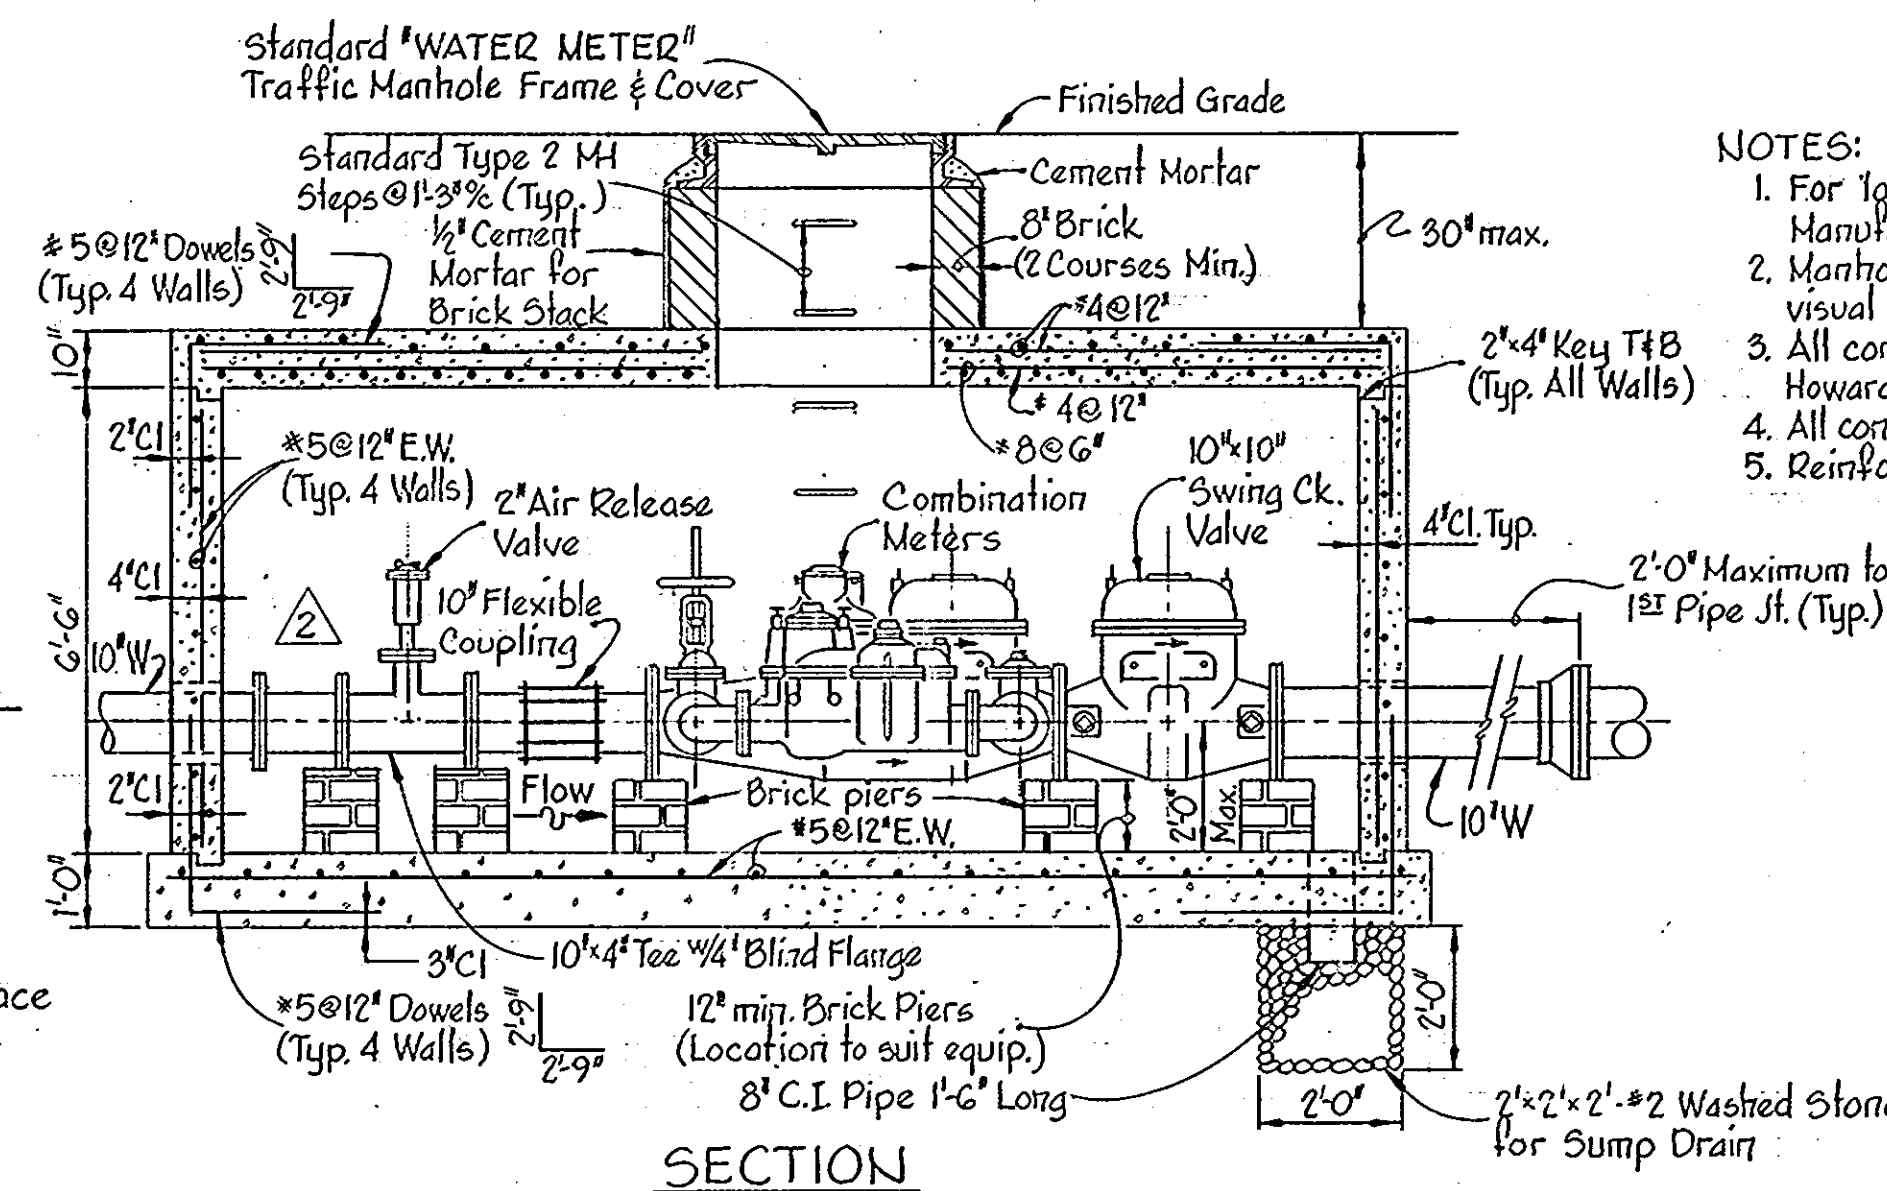 Standard "WATER METER"
Traffic Manhole Frame & Cover
Finished Grade
Standard Type 2 MH
Steps @ 1'-3" % (Typ.)
Cement Mortar
#5@12" Dowels
(Typ. 4 Walls)
2'-9"
2'-9"
1/2" Cement
Mortar for
Brick Stack
8" Brick
(2 Courses Min.)
30" max.
#4@12"
10"
2"x4" Key T&B
(Typ. All Walls)
#4@12"
#8@6"
2"Cl
#5@12" E.W.
(Typ. 4 Walls)
2" Air Release
Valve
Combination
Meters
10"x10"
Swing Ck.
Valve
4"Cl. Typ.
4"Cl
2
10" Flexible
Coupling
2'-0" Maximum to
1ST Pipe Jt. (Typ.)
6'-6"
10"W
2"Cl
Flow
Brick piers
#5@12" E.W.
2'-0"
Max.
10"W
1'-0"
3"Cl
10"x4" Tee w/4" Blind Flange
#5@12" Dowels
(Typ. 4 Walls)
2'-9"
2'-9"
12" min. Brick Piers
(Location to suit equip.)
8" C.I. Pipe 1'-6" Long
2'-0"
2'-0"
2'x2'x2'-#2 Washed Ston
for Sump Drain
SECTION
NOTES:
1. For
Manuf
2. Manho
visual
3. All con
Howard
4. All con
5. Reinfo
ace